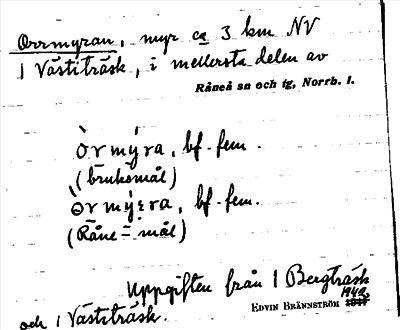 Orrmyran, myr ca 3 km NV
i Västiträsk, i mellersta delen av
Råneå sn och tg, Norrb. l.
òrmy̆ra, bf. fem.
(bruksmål)
òrmy̆:ra, bf. fem.
(Råne-mål)
Uppgiften från i Bergträsk
och i Västiträsk.
EDVIN BRÄNNSTRÖM 1942